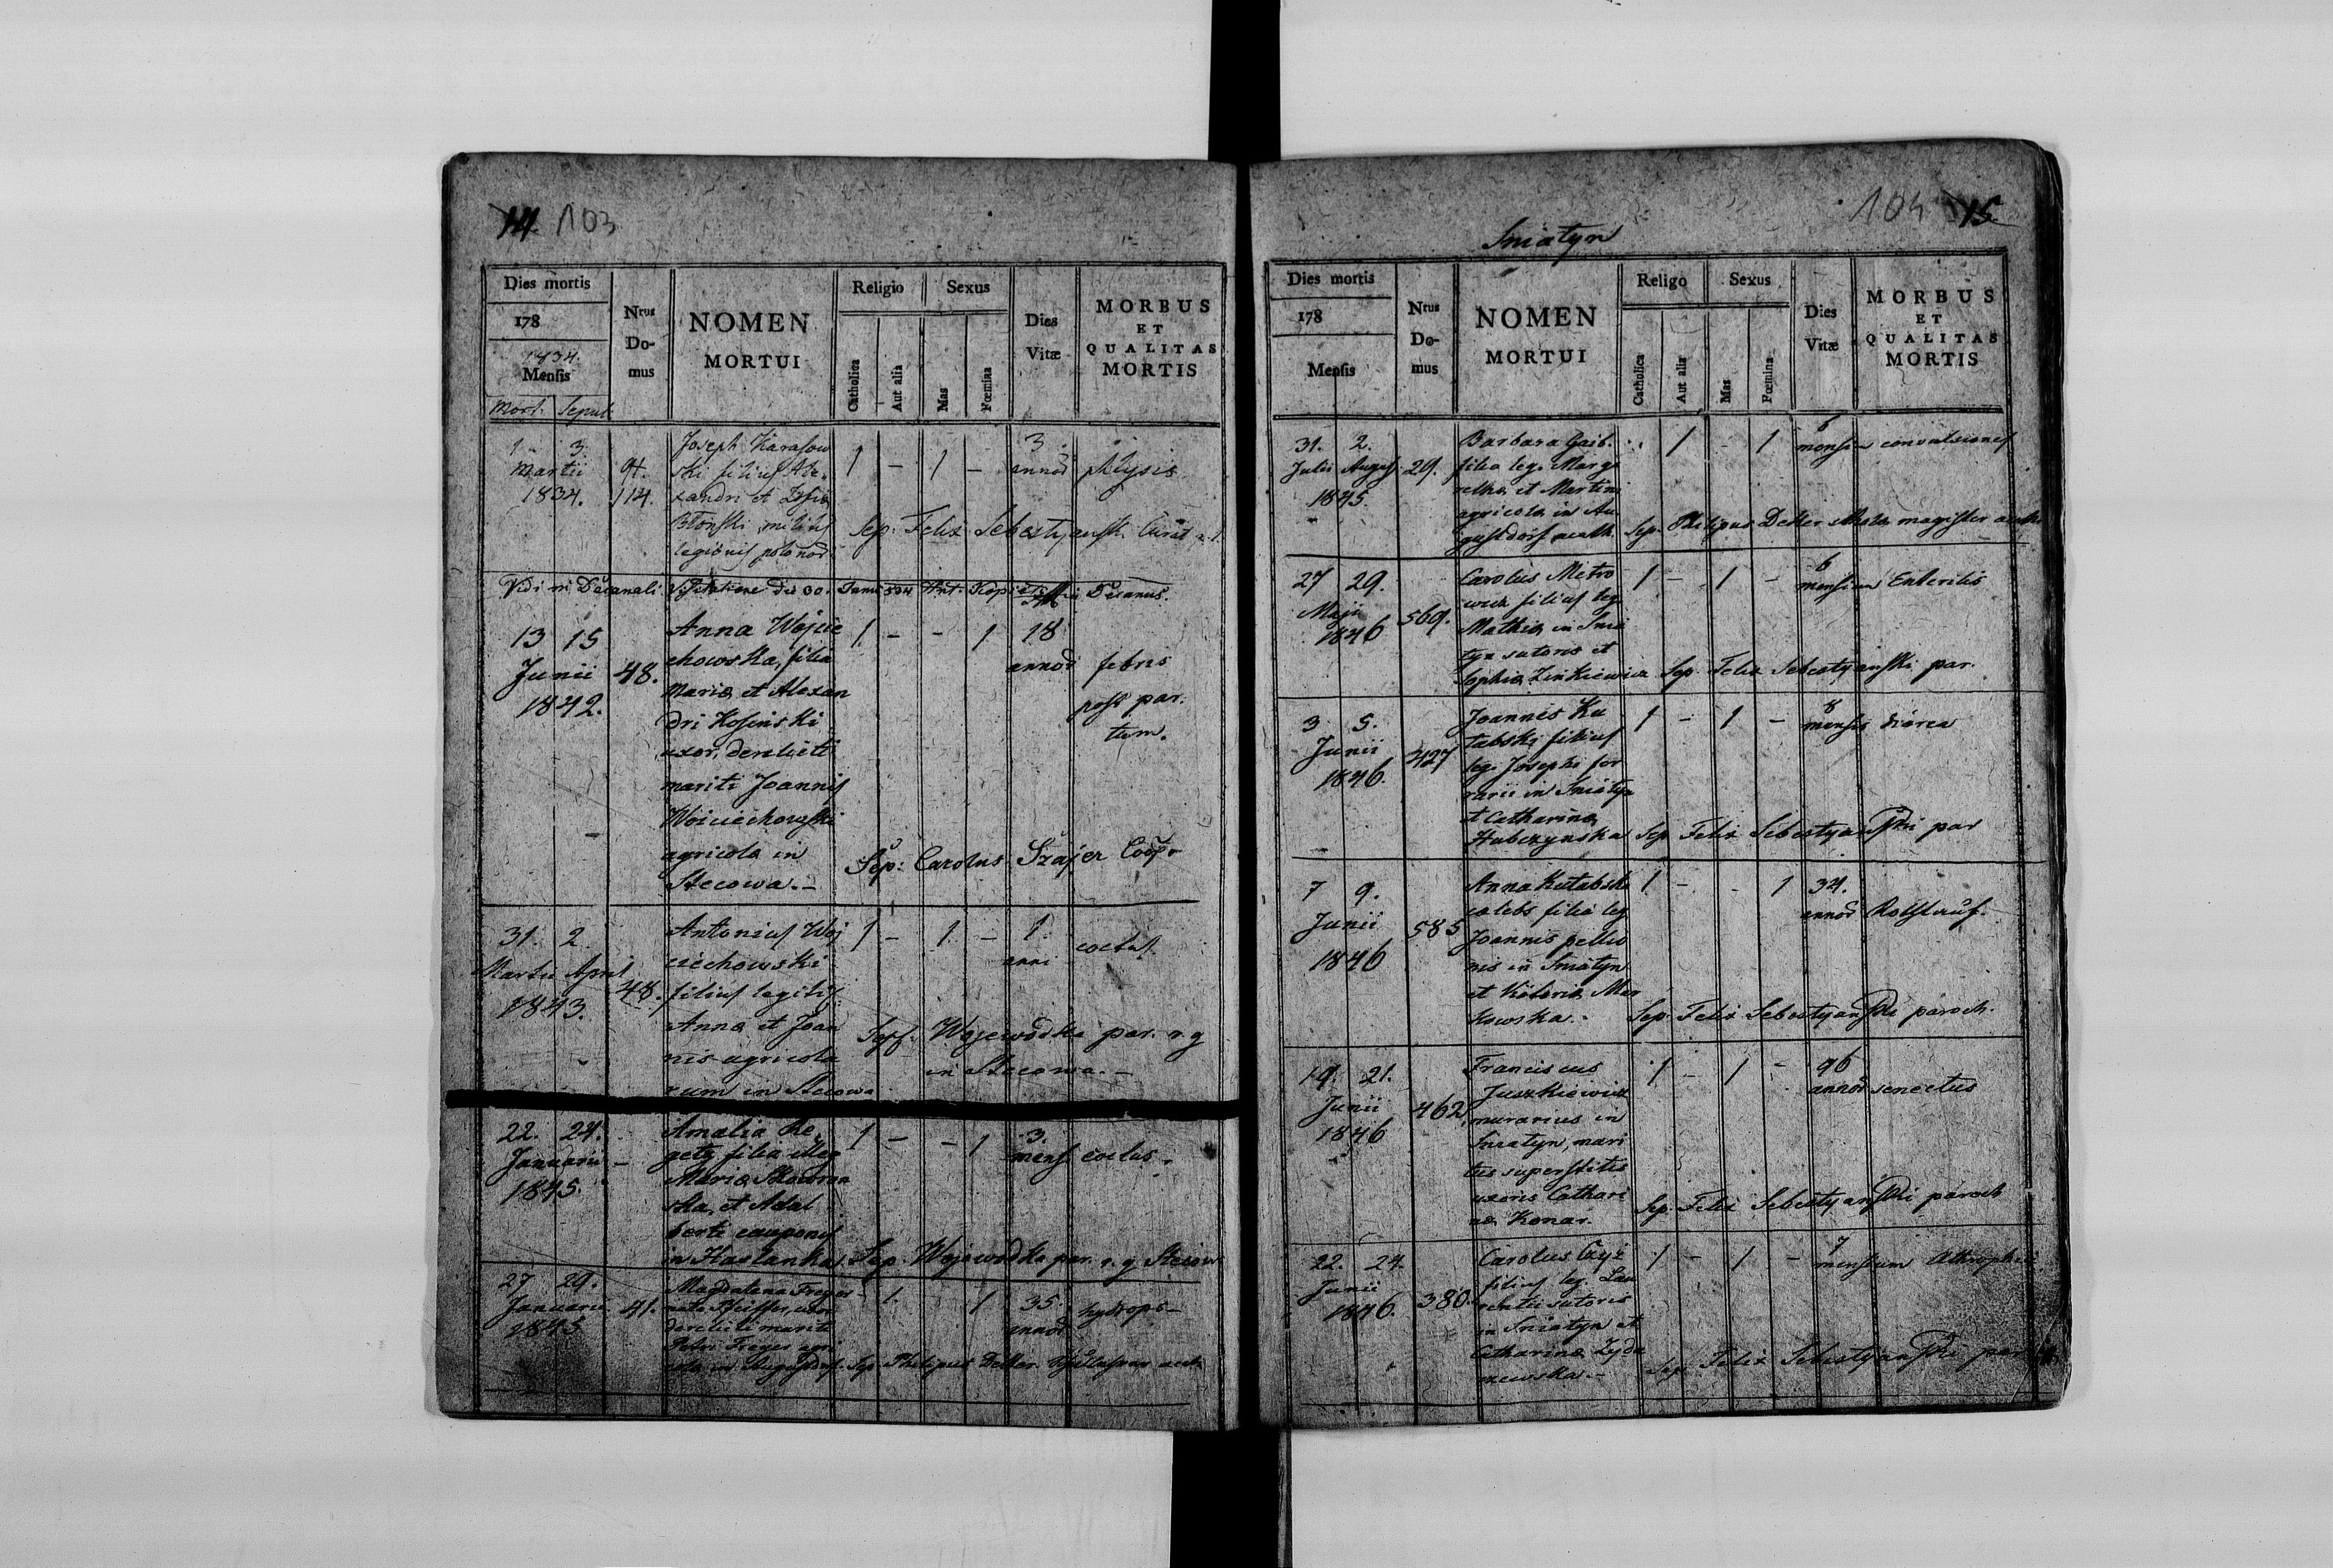 14. 103
Dies mortis
178
1834.
Mensis
Mort. Sepul.
Nrus
Do-
mus
NOMEN
MORTUI
Religio
Catholica
Aut alia
Sexus
Mas
Fœmina
Dies
Vitæ
MORBUS
ET
QUALITAS
MORTIS
1. 3.
Martii
1834.
94.
114.
Joseph Karasow
ski filius Ale-
xandri et Zofia
Błonski militis
legionis polonor:
1 - 1 -
3
annor
phtysis
Sep: Felix Sebastyanski Curat
Vidi in Decanali Visitatione die 30. Junii 834 Ant: Decanus.
13 15
Junii
1842.
48.
Anna Wojcie
chowska, filia
Maria et Alexan
dri Kosinski
uxor derelicti
mariti Joannis
Woiciechowski
agricola in
Stecowa. -
1. - - 1
18
annor
febris
post par.
tum.
Sep: Carolus Szajer Coop
31. 2.
Martii April
1843.
48.
Antonius Woj
ciechowski
filius legitis:
Anna et Joan
nis agricola
rum in Stecowa
1 - 1. -
1.
anni
coctus.
Wojewodka par. r. g
in Stecowa. -
22. 24.
Januarii
1845.
-
Amalia Re
gety filia illeg
Maria Skowron
ska, et Adal
berti cauponis
in Hankan
1 - - 1
3.
mens
coctus.
Sep. Wojewodka par. r. g Stecow
27 29.
Januarii
1845
41.
Magdalena Freyer
nata Pfeiffer, uxor
derelicti mariti
Petri Freyer agri
cola in Augustdorf.
- 1. 1
35.
annor
hydrops -
Sep Philipus Decker.
104 15
Sniatyn
Dies mortis
178
Mensis
Nrus
Do-
mus
NOMEN
MORTUI
Religo
Catholica
Aut alia
Sexus
Mas
Fœmina
Dies
Vitæ
MORBUS
ET
QUALITAS
MORTIS
31. 2.
Julii August
1845.
29.
Barbara Gaib.
filia leg. Marga
retha et Martini
agricola in Au
gustdorf
1 - 1
6
mensium
convulsiones
Sep. Philipus Decker magister
27 29.
Maji
1846
569.
Carolus Metro
wicz filius leg
Mathia in Snia
tyn sutoris et
Sophia Zinkiewicz
1 - 1 -
6
mensium
Enteritis
Sep. Felix Sebestyanski par.
3 5.
Junii
1846.
427
Joannes Ku
tabski filius
leg. Josephi for
rarii in Sniatyn
et Catharina
Hubczynska
1 - 1 -
8
mensis
diarea
Sep. Felix Sebestyanski par
7 9.
Junii
1846
585
Anna Kutabska
cælebs filia leg
Joannis pellio
nis in Sniatyn
et Victoria Mar
kowska. -
1 - - 1
34.
annor
Rothlauf.
Sep. Felix Sebestyanski paroch.
19. 21.
Junii
1846
462
Franciscus
Juszkiewicz
murarius in
Sniatyn, mari
tus superstitis
uxoris Cathari
na Konar.
1 - 1 -
96
annor
senectus
Sep. Felix Sebestyanski paroch
22. 24.
Junii
1846.
380.
Carolus Czyż
filius leg. Lau
rentii sutoris
in Sniatyn et
Catharina Zyda
newska. -
1 - 1 -
7
mensium
Athrophia
Sep. Felix Sebestyanski